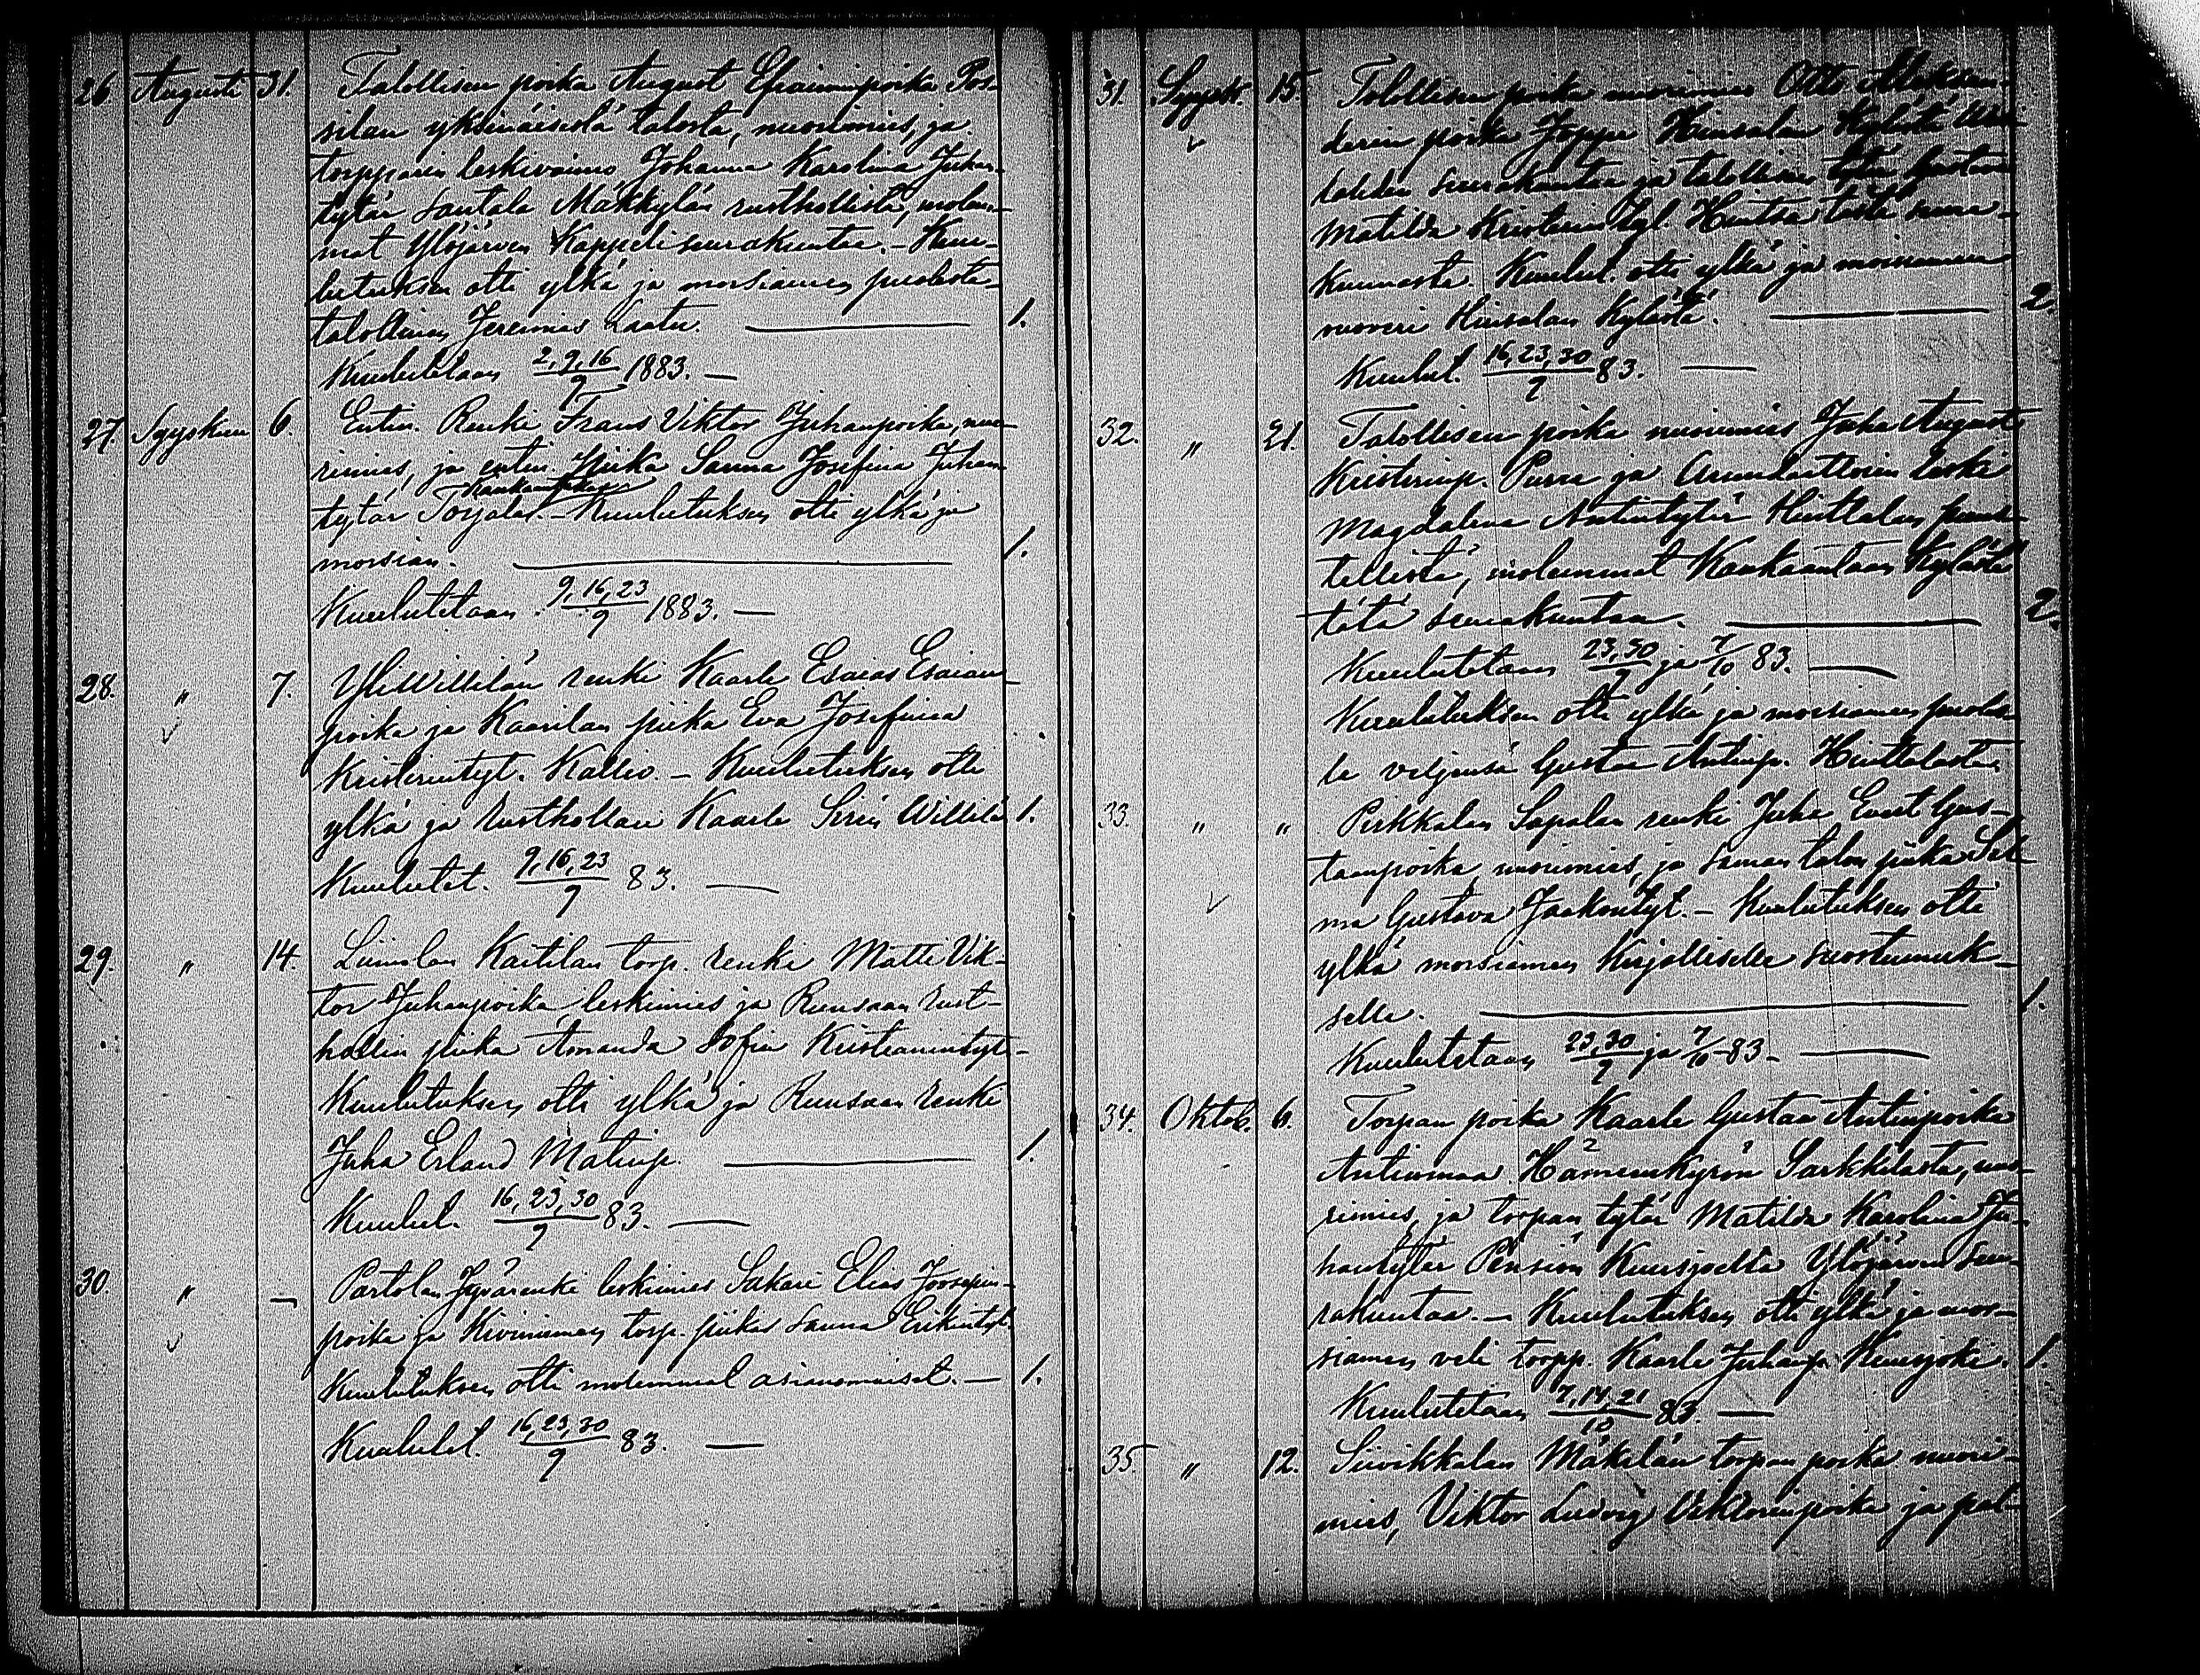 26. Augusti 31. Talollisen poika August Efraiminpoika Pos-
silan yksinäisestä talosta, nuorimies, ja
torpparin leskivaimo Johanna Karolina Juhan-
tytär Santala Mäkkylän rusthollista, molem-
mat Ylöjärven Kappeliseurakuntaa. - Kuu-
lutuksen otti ylkä ja morsiamen puolesta
talollinen Jeremias Laatu. 1.
Kuulutetaan 2,9,16/9 1883.
27. Syyskuu 6. Entin. Renki Frans Viktor Juhanpoika, nuo-
rimies, ja entin. Piika Sanna Josefina Juhan-
tytär Kuulutuksen otti ylkä ja
morsian. 1.
Kuulutetaan 9,16,23/9 1883.
28. " 7. YliWillilän renki Kaarle Esaias Esaian-
poika ja Kaarilan piika Eva Josefina
Kristerintyt. Kallio. - Kuulutuksen otti
ylkä ja rusthollari Kaarle Sirén Willilä 1.
Kuulutet. 9,16,23/9 83.
29. " 14. Liimolan Kaitilan torp. renki Matti Vik-
tor Juhanpoika, leskimies ja Ruusaan rust-
hollin piika Amanda Sofia Kristianintyt.
Kuulutuksen otti ylkä ja Ruusaan renki
Juha Erland Matinp. 1.
Kuulut. 16,23,30/9 83.
30. " - Partolan Jyvärenki leskimies Sakari Elias Joosepin-
poika ja Kiviniemen torp. piika Sanna Erkintyt.
Kuulutuksen otti molemmat asianomaiset. - 1.
Kuulutet. 16,23,30/9 83.
31. Syysk. 15. Talollisen poika nuorimies Otto Aleksan-
derin poika Joppe Hiusalan Kylästä
seurakuntaa ja talollisen tytär Gustava
Matilda Kristerintyt. Hintsa tästä seura-
kunnasta. Kuulut. otti ylkä ja morsiamen
Hiusalan Kylästä. 2.
Kuulut. 16,23,30/9 83.
32. " 21. Talollisen poika nuorimies Juha August
Kristerinp. Purra ja leski
Magdalena Antintytär Hinttalan puus-
tellista, molemmat Kankaantaan Kylästä
tätä seurakuntaa. 2.
Kuulutetaan 23,30/9 ja 7/10 83.
Kuulutuksen otti ylkä ja morsiamen puoles-
ta veljensä Gustaa Antinp. Hinttalasta.
33. " " Pirkkalan Sapalan renki Juha Evert Gus-
taanpoika, nuorimies, ja saman talon piika Sel-
ma Gustava Jaakontyt. - Kuulutuksen otti
ylkä morsiamen Kirjallisella suostumuk-
sella. 1.
Kuulutetaan 23,30/9 ja 7/10 83.
34. Oktob. 6. Torpan poika Kaarle Gustaa Antinpoika
Antinmaa Hämeenkyrön Sarkkilasta, nuo-
rimies, ja torpan tytär Matilda Karolina Ju-
hantytär Pensiön Kuusjoelta Ylöjärven seu-
rakuntaa. - Kuulutuksen otti ylkä ja mor-
siamen veli torpp. Kaarle Juhanp. Kuusjoki. 1.
Kuulutetaan 7,14,21/10 83.
35. " 12. Siivikkalan Mäkelän torpan poika nuori-
mies, Viktor Ludvig Viktorinpoika ja pal-